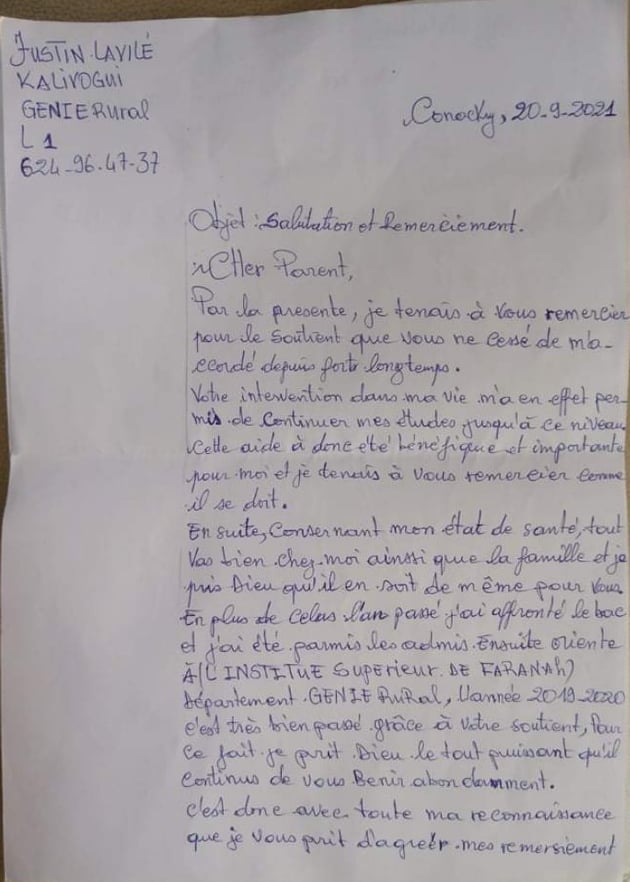 JUSTIN LAVILÉ
KALIVOGUI
GENIE Rural
L 1
624-96-47-37
Conacky, 20-9-2021
Objet : Salutation et Remerciement.
CHer Parent,
Par la presente, je tenais à vous remercier
pour le soutient que vous ne cessé de m'a-
ccordé depuis forts longtemps.
Votre intervention dans ma vie m'a en effet per-
mis de continuer mes études jusqu'à ce niveau.
Cette aide à donc été bénéfique et importante
pour moi et je tenais à vous remercier comme
il se doit.
En suite, Consernant mon état de santé, tout
Vas bien chez moi ainsi que la famille et je
pris Dieu qu'il en soit de même pour vous.
En plus de celas l'an passé j'ai affronté le bac
et j'ai été parmis les admis. Ensuite oriente
À (L'INSTITUE Superieur DE FARANAH)
Département GENIE RuRal, L'année 2019-2020
c'est très bien passé grâce à votre soutient, Pour
ce fait je prit Dieu le tout puissant qu'il
continus de vous Benir abondamment.
c'est donc avec toute ma reconnaissance
que je vous prit d'agréér mes remersiement